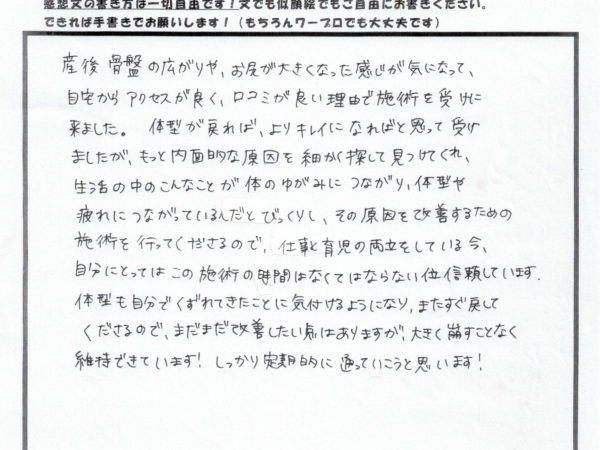 感想文の書き方は一切自由です！文でも似顔絵でもご自由にお書きください。
できれば手書きでお願いします！（もちろんワープロでも大丈夫です）
産後 骨盤の広がりや、お尻が大きくなった感じが気になって、
自宅から アクセスが良く、口コミが良い理由で施術を受けに
来ました。 体型が戻れば、よりキレイになればと思って受け
ましたが、もっと内面的な原因を細かく探して見つけてくれ、
生活の中のこんなことが体のゆがみにつながり、体型や
疲れにつながっているんだとびっくりし、その原因を改善するための
施術を行ってくださるので、仕事と育児の両立をしている今、
自分にとってはこの施術の時間はなくてはならない位信頼しています。
体型も自分でくずれてきたことに気付けるようになり、またすぐ戻して
くださるので、まだまだ改善したい点はありますが、大きく崩すことなく
維持できています！ しっかり定期的に通っていこうと思います！